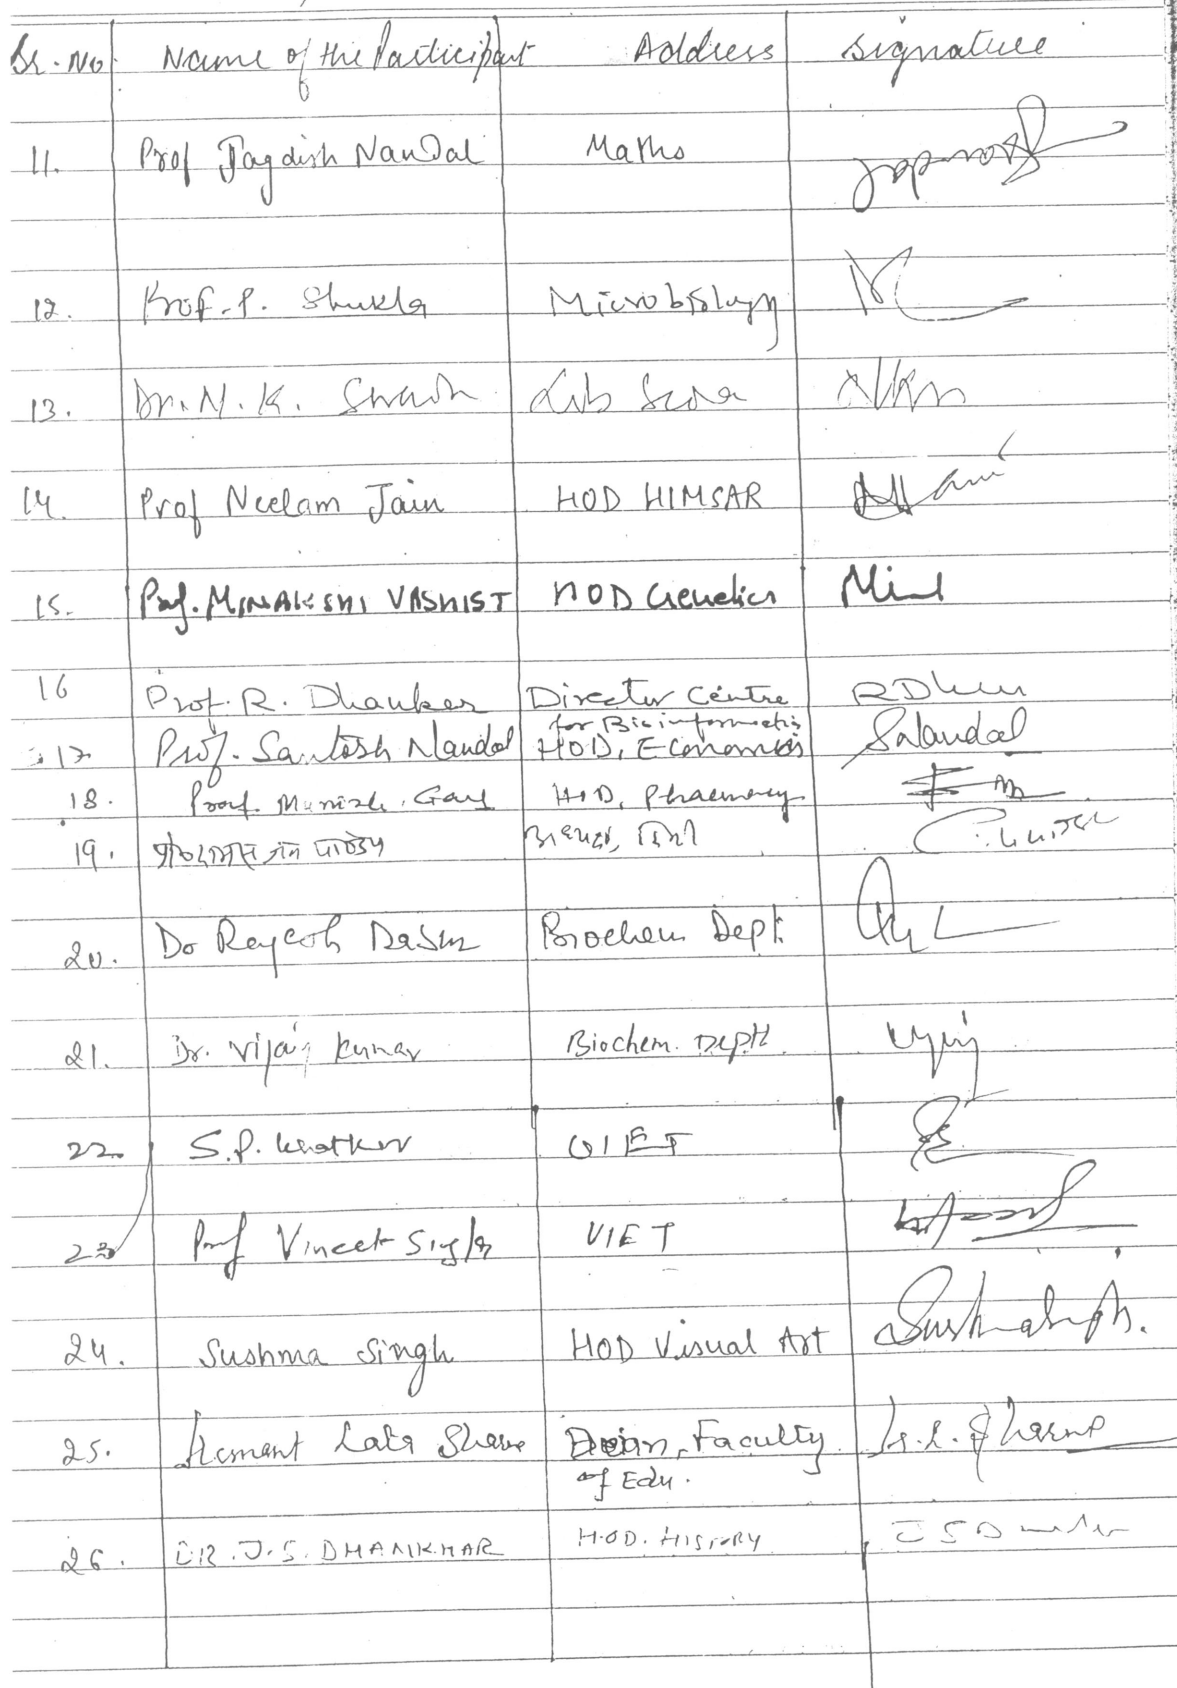 Sr. No Name of the Participant Address Signature
11. Prof Jagdish Nandal Maths
12. Prof. P. Shukla Microbiology
13. Dr. N. K. Swain Lib Science
14. Prof Neelam Jain HOD HIMSAR
15. Prof. MINAKSHI VASHIST HOD Genetics Min
16 Prof. R. Dhankar Director Centre
for Bioinformatics
17. Prof. Santosh Nandal HOD, Economics SNandal
18. Prof. Munish Garg HOD, Pharmacy
19. अध्यक्ष, हिन्दी
20. Dr Rajesh Biochem Dept.
21. Dr. Vijay Kumar Biochem. Deptt.
22. S.P. Khatkar UIET
23 Prof Vineet Singla UIET
24. Sushma Singh HOD Visual Art
25. Hemant Lata Sharma Dean, Faculty H.L. Sharma
of Edu.
26. DR. J.S. DHANKHAR H.O.D. HISTORY